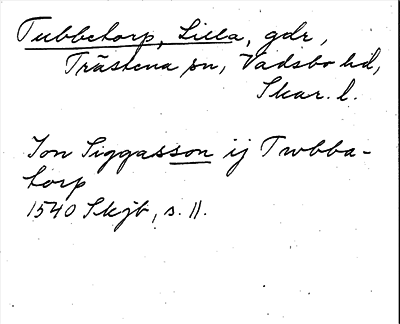 Tubbetorp, Lilla, gdr,
Trästena sn, Vadsbo hd,
Skar. l.
Jon Siggasson ij Twbba-
torp
1540 Skjb, s. 11.